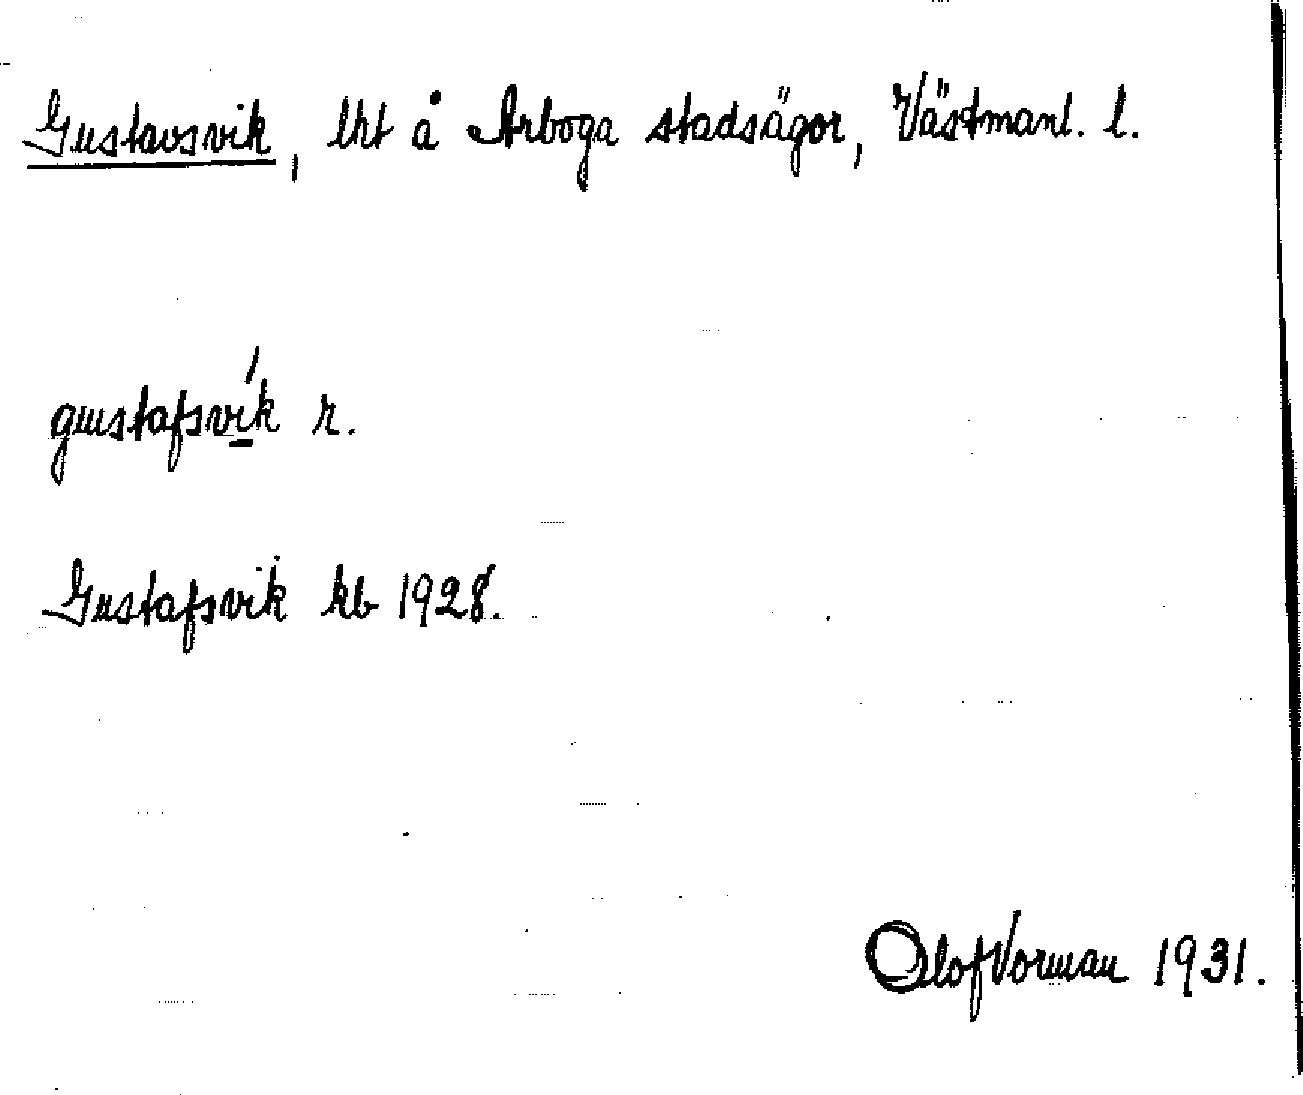 Gustavsvik, lht å Arboga stadsägor, Västmanl. l.
gustafsvík r.
Gustafsvik kb 1928.
Olof Vorman 1931.